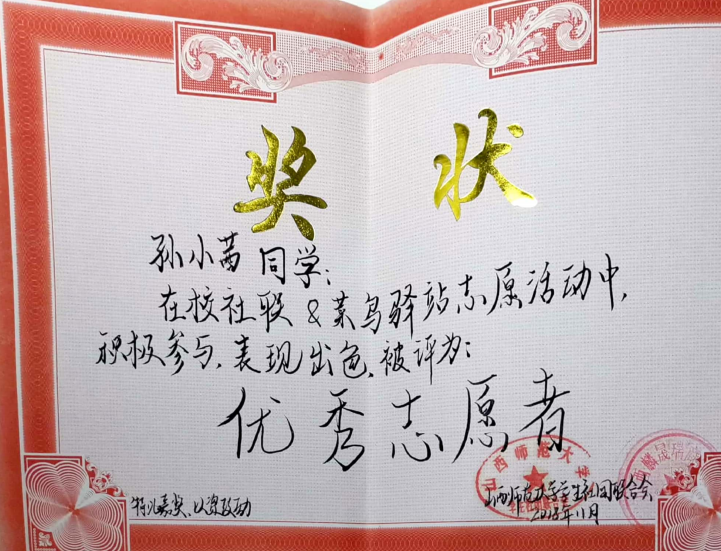 奖状
孙小茜同学:
在校社联&菜鸟驿站志愿活动中,
积极参与,表现出色,被评为:
优秀志愿者
特此嘉奖,以资鼓励
山西师范大学学生社团联合会
2018年11月
山西师范大学